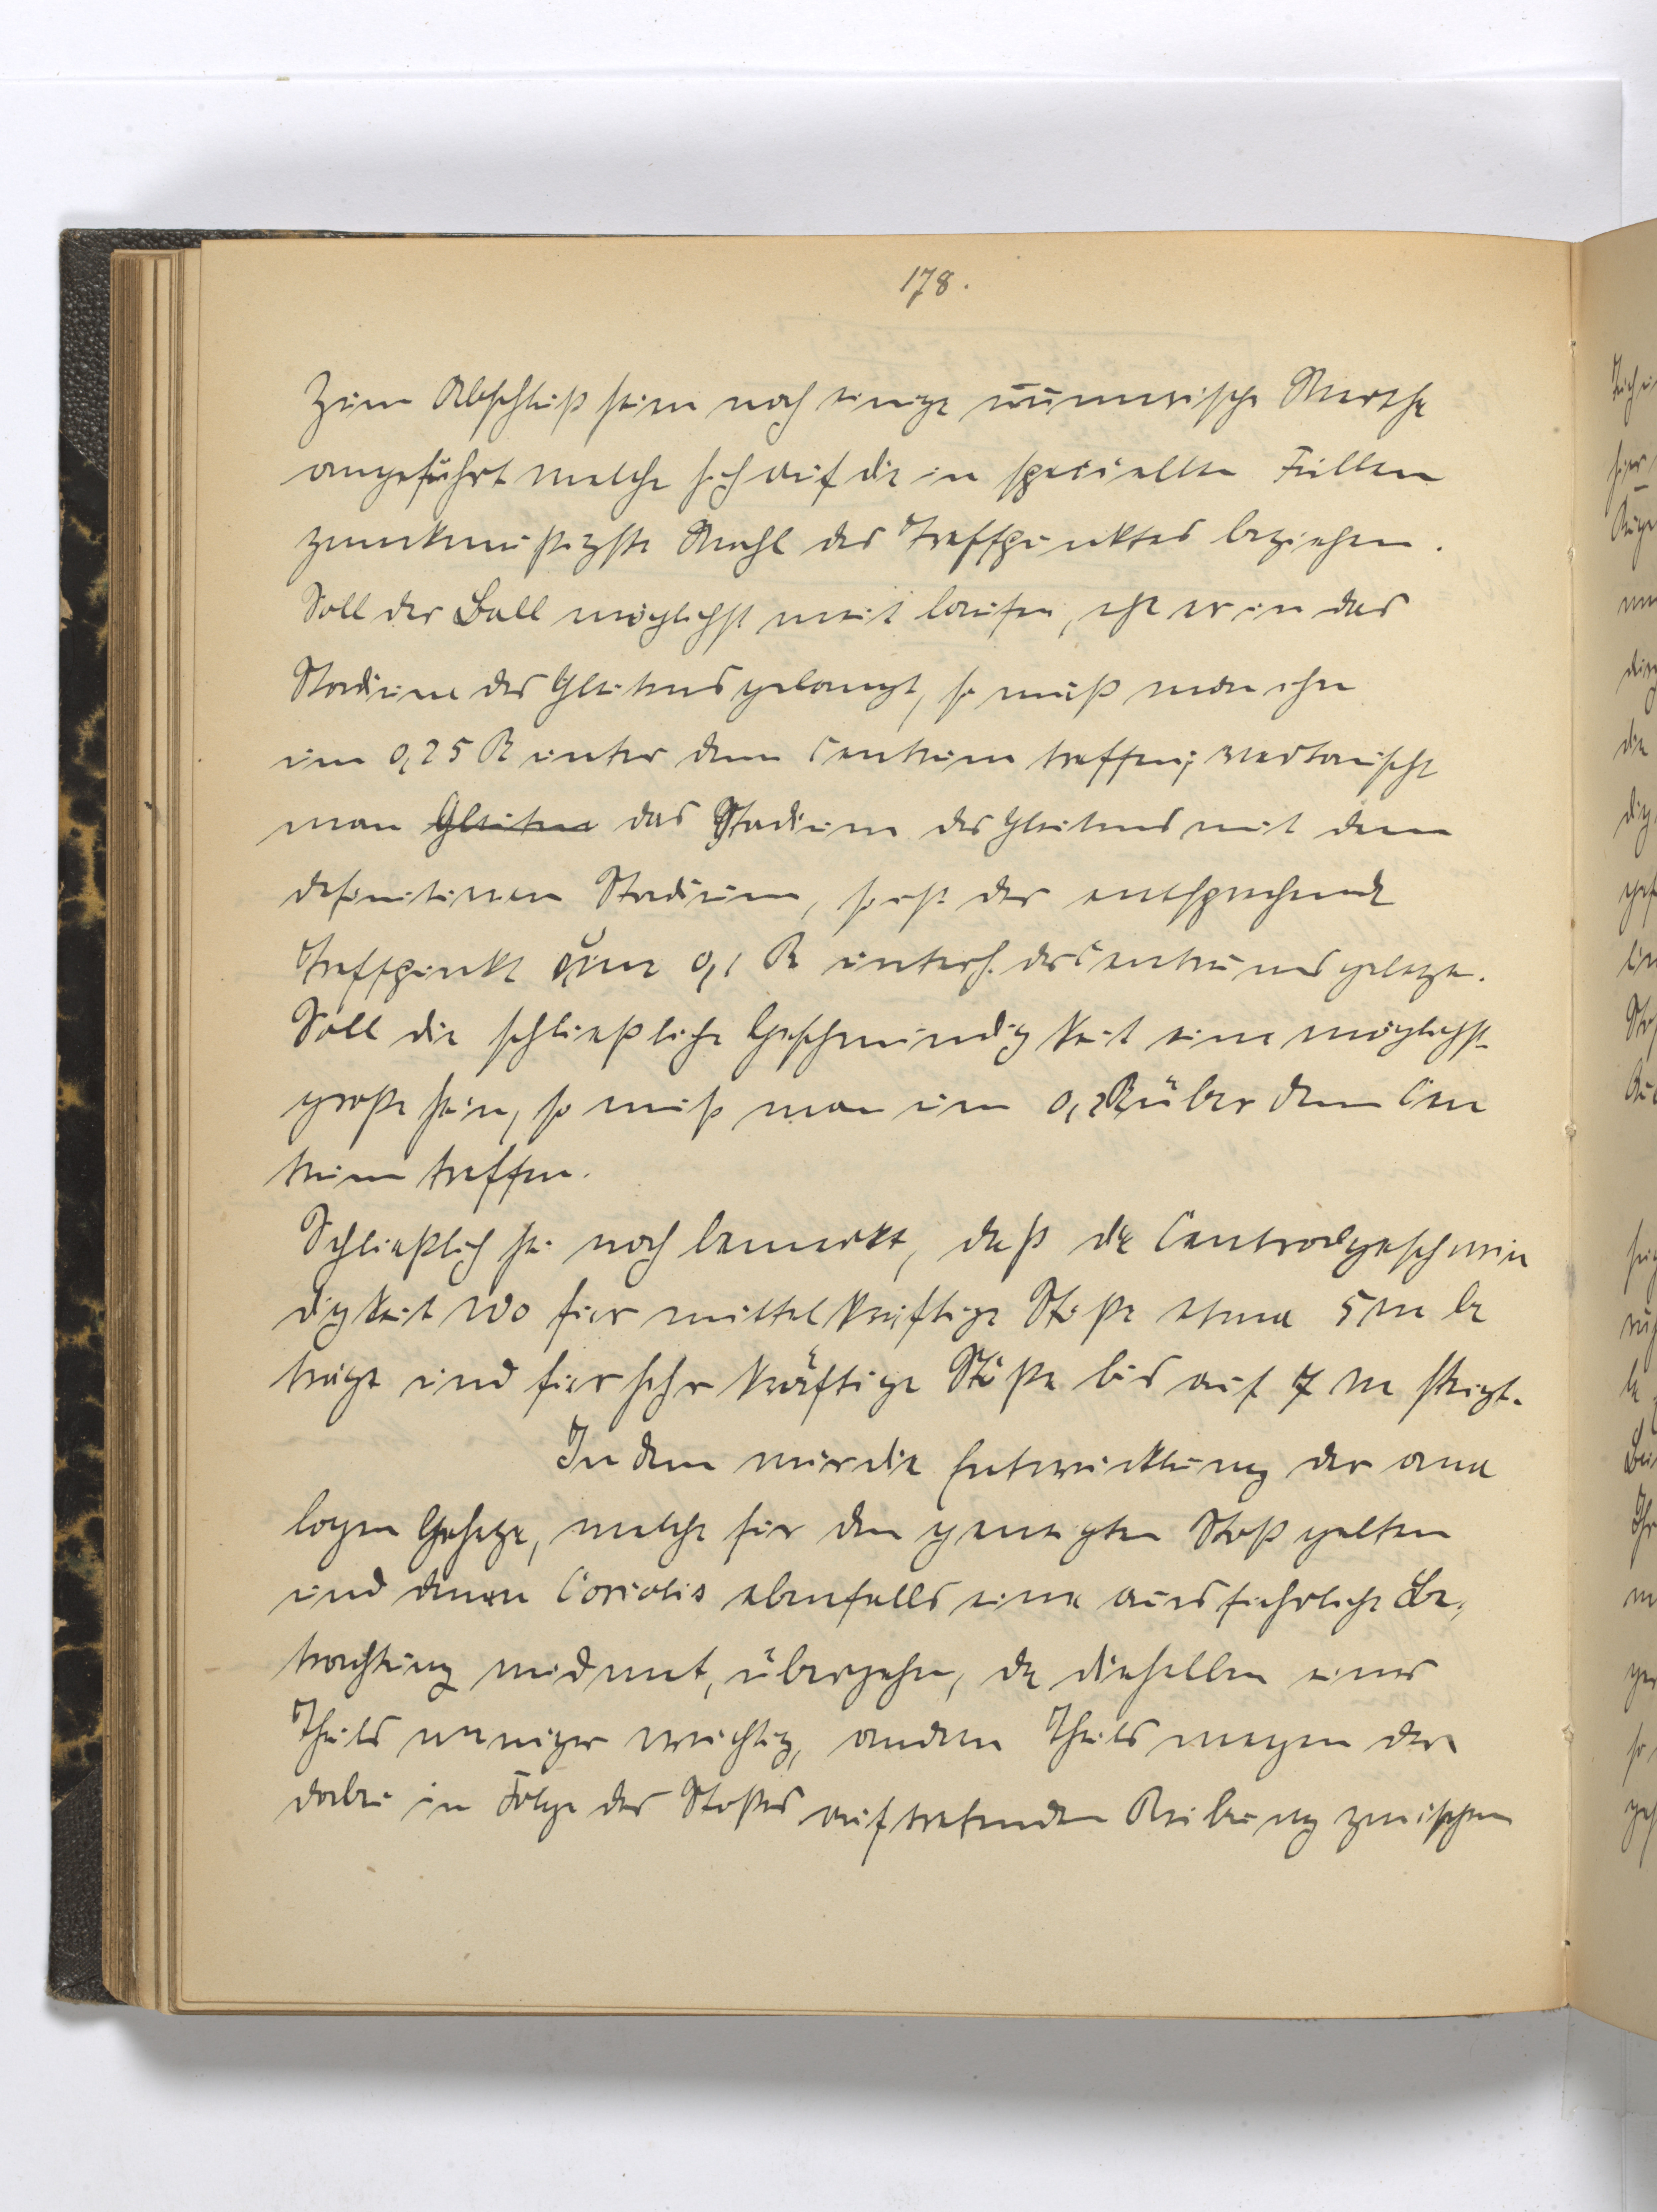 178.
Zum Abschluß seien noch einige nummerische Werthe
angeführt welche sich auf die in speciellen Fällen
zweckmäßigste Wahl des Treffpunktes beziehen.
Soll der Ball möglichst weit laufen, ehe er in das
Stadium des Gleitens gelangt, so muß man ihn
um 0,25 R unter dem Centrum treffen; vertauscht
man Gleiten das Stadium des Gleitens mit dem
definitiven Stadium, so ist der entsprechende
Treffpunkt um 0,1 R unterh. des Centrums gelegen.
Soll die schließliche Geschwindigkeit eine möglichst
große sein, so muß man um 0,2R über dem Cen
trum treffen.
Schließlich sei noch bemerkt, daß die Centralgeschwin
digkeit W0 für mittelkräftige Stöße etwa 5 m be
trägt und für sehr kräftige Stöße bis auf 7 m steigt.
In dem wir die Entwicklung der ana
logen Gesetze, welche für den geneigten Stoß gelten
und denen Coriolis ebenfalls eine ausführliche Be,
trachtung widmet, übergehen, da dieselben eines
Theils weniger wichtig, andern Theils wegen der
dabei in Folge des Stoßes auftretenden Reibung zwischen